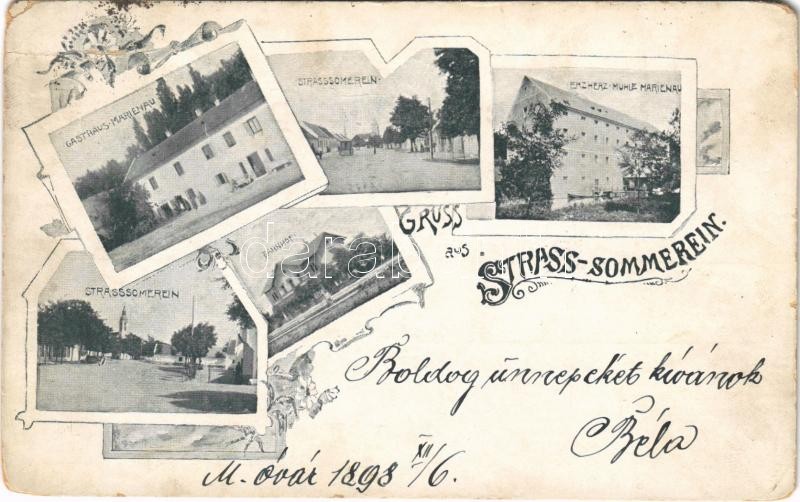 GASTHAUS-MARIENAU
STRASSSOMEREIN
ERZHERZ-MÜHLE MARIENAU
STRASSSOMEREIN
BAHNHOF
GRUSS
aus
STRASS-SOMMEREIN.
Boldog ünnepeket kívánok
Béla
M. óvár 1898 XII/6.
darabanth